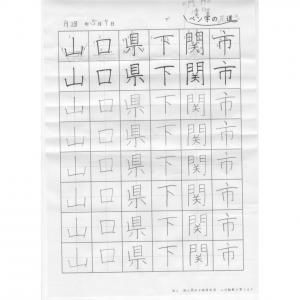 ペン字の道
山口県下関市
山口県下関市
山口県下関市
山口県下関市
山口県下関市
山口県下関市
山口県下関市
山口県下関市